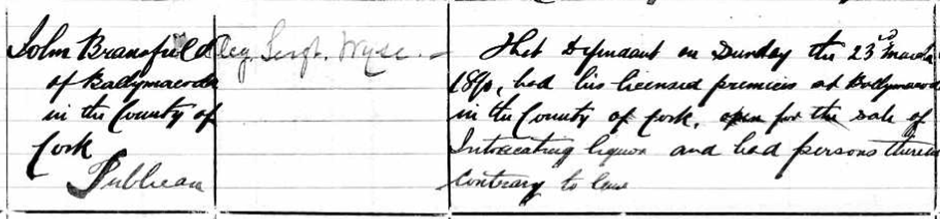 John Bransfield
of Ballymacoda
in the County of
Cork
Publican
Acg. Sergt. Wyse. -
That Defendant on Sunday the 23rd March
1890, had his licensed premises at Ballymacoda
in the County of Cork, open for the sale of
Intoxicating liquor and had persons therein
contrary to law